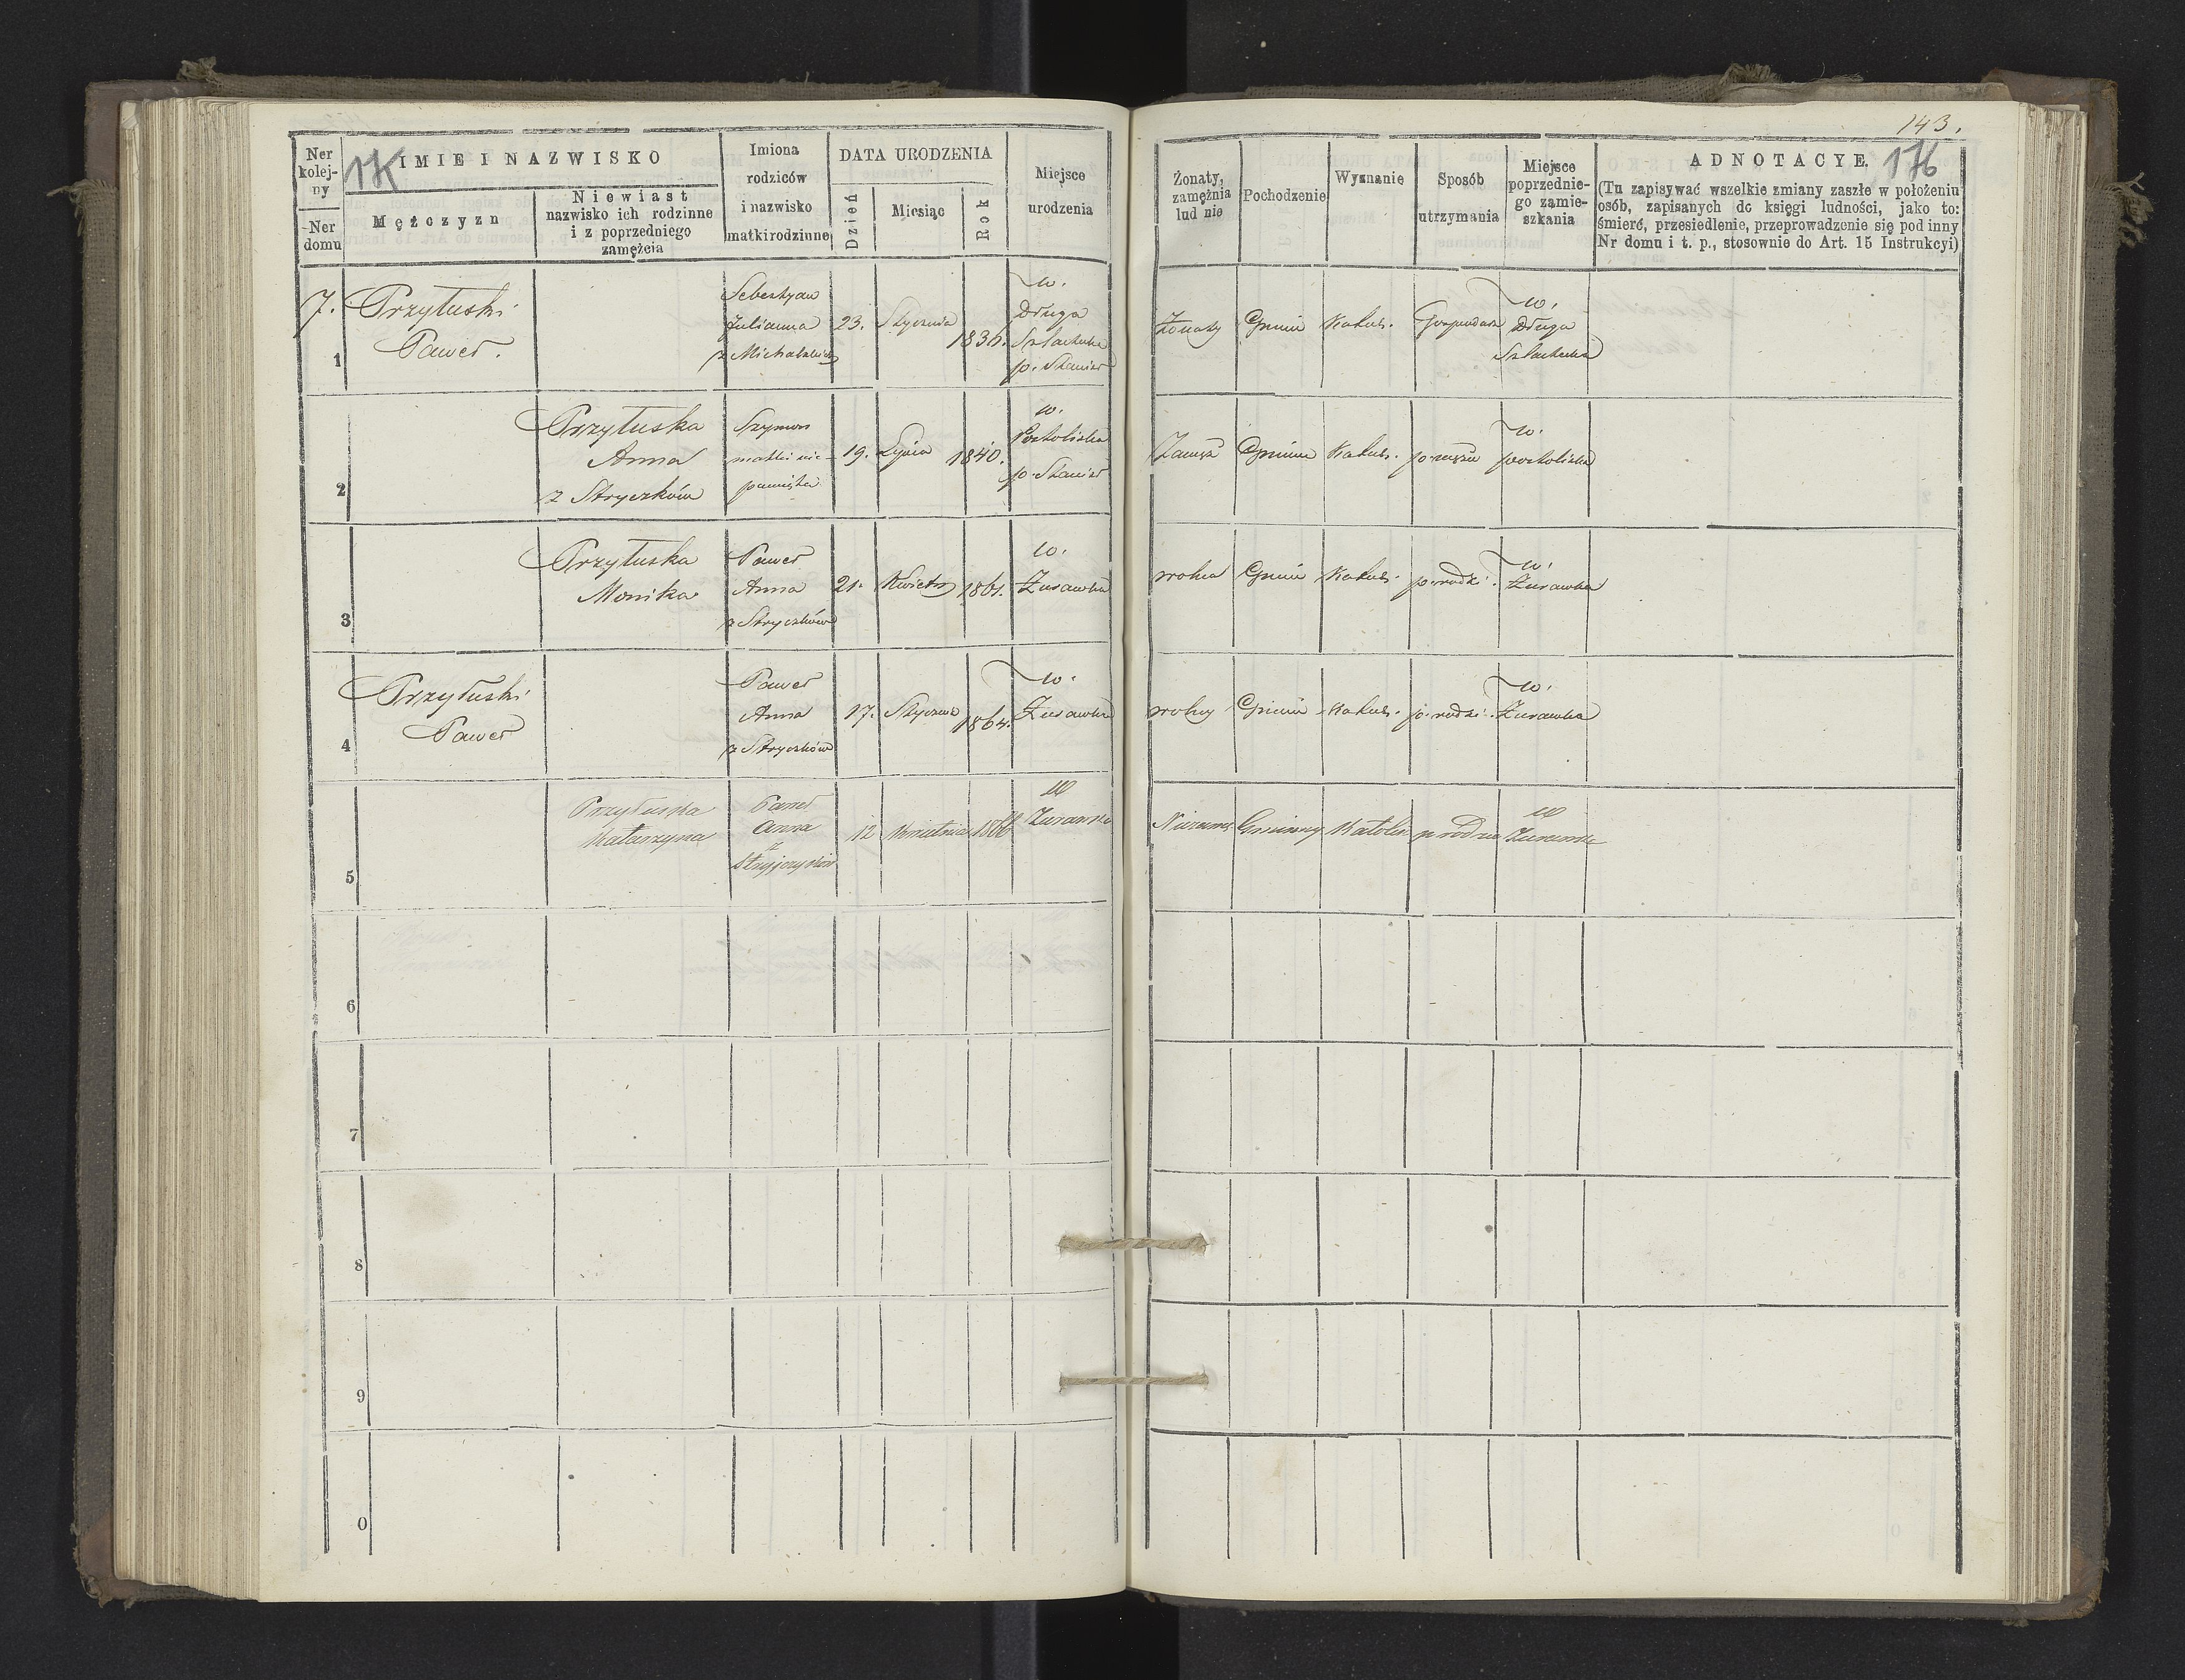 143.
176
Ner kolejny
Ner domu
IMIE I NAZWISKO
Mężczyzn
Niewiast
nazwisko ich rodzinne
i z poprzedniego
zamężcia
Imiona
rodziców
i nazwisko
matki rodzinne
DATA URODZENIA
Dzień
Miesiąc
Rok
Miejsce
urodzenia
Żonaty,
zamężnia
lud nie
Pochodzenie
Wyznanie
Sposób
utrzymania
Miejsce
poprzednie-
go zamie-
szkania
ADNOTACYE.
(Tu zapisywać wszelkie zmiany zaszłe w położeniu
osób, zapisanych do księgi ludności, jako to:
śmierć, przesiedlenie, przeprowadzenie się pod inny
Nr domu i t. p., stosownie do Art. 15 Instrukcyi)
7.
1
Przytuski
Paweł.
Sebestyan
Julianna
z
23.
Stycznia
1836.
w.
Długa
Szlachecka
p. Stanisł
Żonaty
Gmin
Katol.
Gospodarz
w.
Długa
Szlachecka
2
Przytuska
Anna
z Stryczków
Szymon
matki nie-
pamięta
19.
Lipca
1840.
w.
p. Stanisł
Zamęż
Gminu
Katol.
p. mężu
w.
3
Przytuska
Monika
Paweł
Anna
z Stryczków
21.
Kwietn
1861.
w.
Żurawka
wolna
Gmin
Katol.
p. rodzi.
w.
Żurawka
4
Przytuski
Paweł
Paweł
Anna
z Stryczków
17.
Styczni
1864.
w.
Żurawka
wolny
Gminu
Katol.
p. rodzi.
w.
Żurawka
5
Przytuska
Katarzyna
Paweł
Anna
z
12
Kwietnia
1866
w
Żurawka
Gminny
Katolic
p rodzic
w
Żurawka
6
7
8
9
0